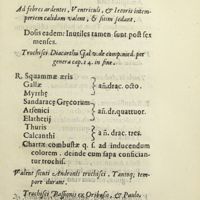 Ad febres ardentes, Ventriculi, & Iecoris intem-
periem calidam valent, & sitim sedant.
Dosis eadem: Inutiles tamen sunt post sex
menses.
Trochisci Diacarthu Gal. v. de composi. med. per
genera cap. 14. in fine.
R. Squammæ æris
Gallæ
Myrrhę
} añ. drac. octo.
Sandaracę Gręcorum
Arsenici
Elatherij
} añ. dr. quattuor.
Thuris
Calcanthi
} añ. drac. tres.
Chartæ combustæ q. s. ad inducendum
colorem. deinde cum sapa conficiantur
trochisci.
Valent sicuti Andronis trochisci, Tantoq; tem-
pore durant.
Trochisci Passionis ex Oribasio, & Paulo.